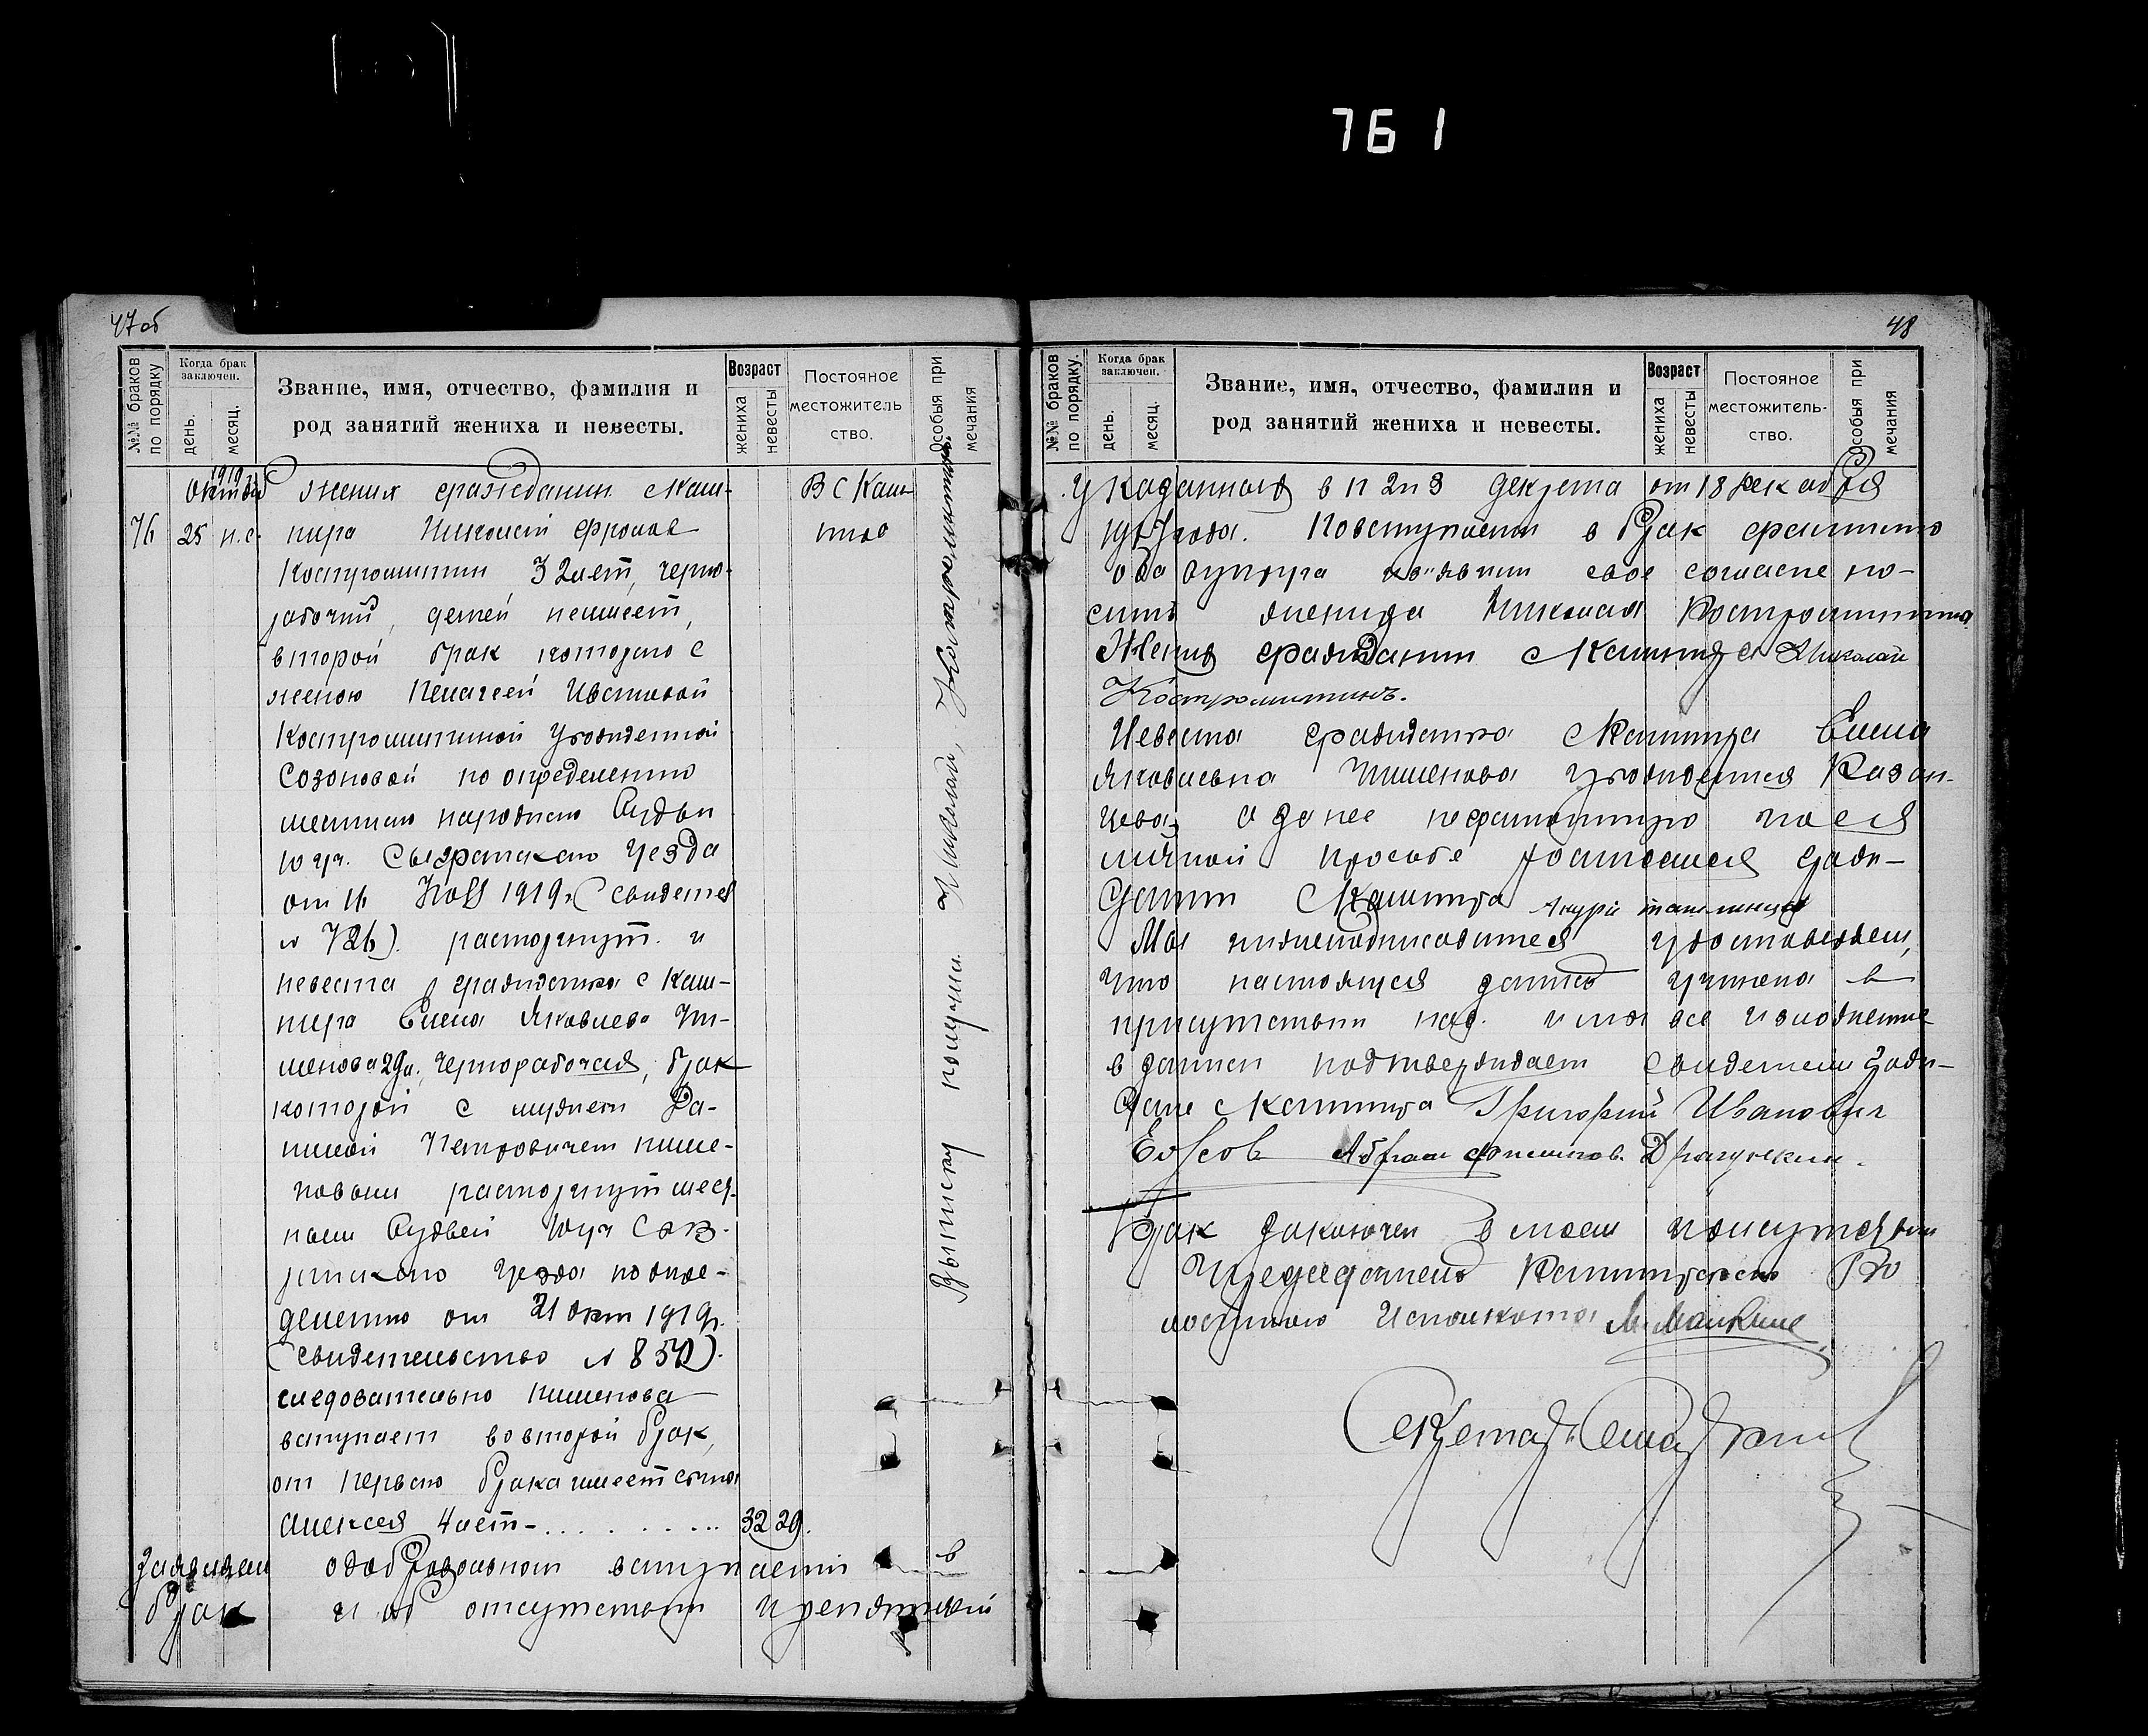 761
47об
№№ браков по порядку
Когда брак заключен.
день.
месяц.
Звание, имя, отчество, фамилия и
род занятий жениха и невесты.
Возраст
жениха
невесты
Постояное
местожитель
ство.
Особыя при
мечания
1919
октября
76 25 н.с.
жених гражданин с Каш-
пира Николай Фролов
Костромитин 32 лет, черно-
рабочий, детей неимеет,
второй брак которого с
женою Пелагеей Ивановой
Костромитиной урожденной
Созоновой по определению
местного народного Судьи
10 уч. Сызранского уезда
от 11 1919 г (свидетел
№ 726). расторгнут. и
невеста гражданка с Каш-
пира Елена Яковлева Пи-
менова 29 л., чернорабочая, брак
которой с мужем
Петровичем Пиме-
новым расторгнут мест-
ным Судьей 10 уч Сыз-
ранского уезда по опре-
делению от 21 окт 1919 г.
(свидетельство № 850).
следовательно Пименова
вступает во второй брак,
от первого брака имеет сына
Алексея 4 лет - . . . . . . . . 32 29.
В С Каш-
пире
Выписку получил. Николай Костромитинъ
Заявляем о добровольном вступлении в
брак и об отсутствии препятствий
48
№№ браков по порядку.
Когда брак заключен.
день.
месяц.
Звание, имя, отчество, фамилия и
род занятий жениха и невесты.
Возраст
жениха
невесты
Постояное
местожитель-
ство.
Особыя при
мечания
указанных в п 2 и 3 декрета от 18 декабря
1917 года. По вступлении в брак фамилию
оба супруга изъявили свое согласие но-
сить жениха Николая Костромитина
Жених гражданин с Кашпира Николай
Костромитинъ.
Невеста гражданка с Кашпира Елена
Яковлевна Пименова урожденная Казан-
цева, а за нее неграмотную по ея
личной просьбе росписался граж-
данин с Кашпира
Мы нижеподписавшиеся удостоверяем,
что настоящая запись учинена в
присутствии нас. и что все изложенное
в записи подтверждаем свидетели граж-
дане с Кашпира Григорий Иванович
Абрам Драгункин.
Брак заключен в моем присутствии
Председатель Кашпирского Во
лостного Исполкома
Секретарь